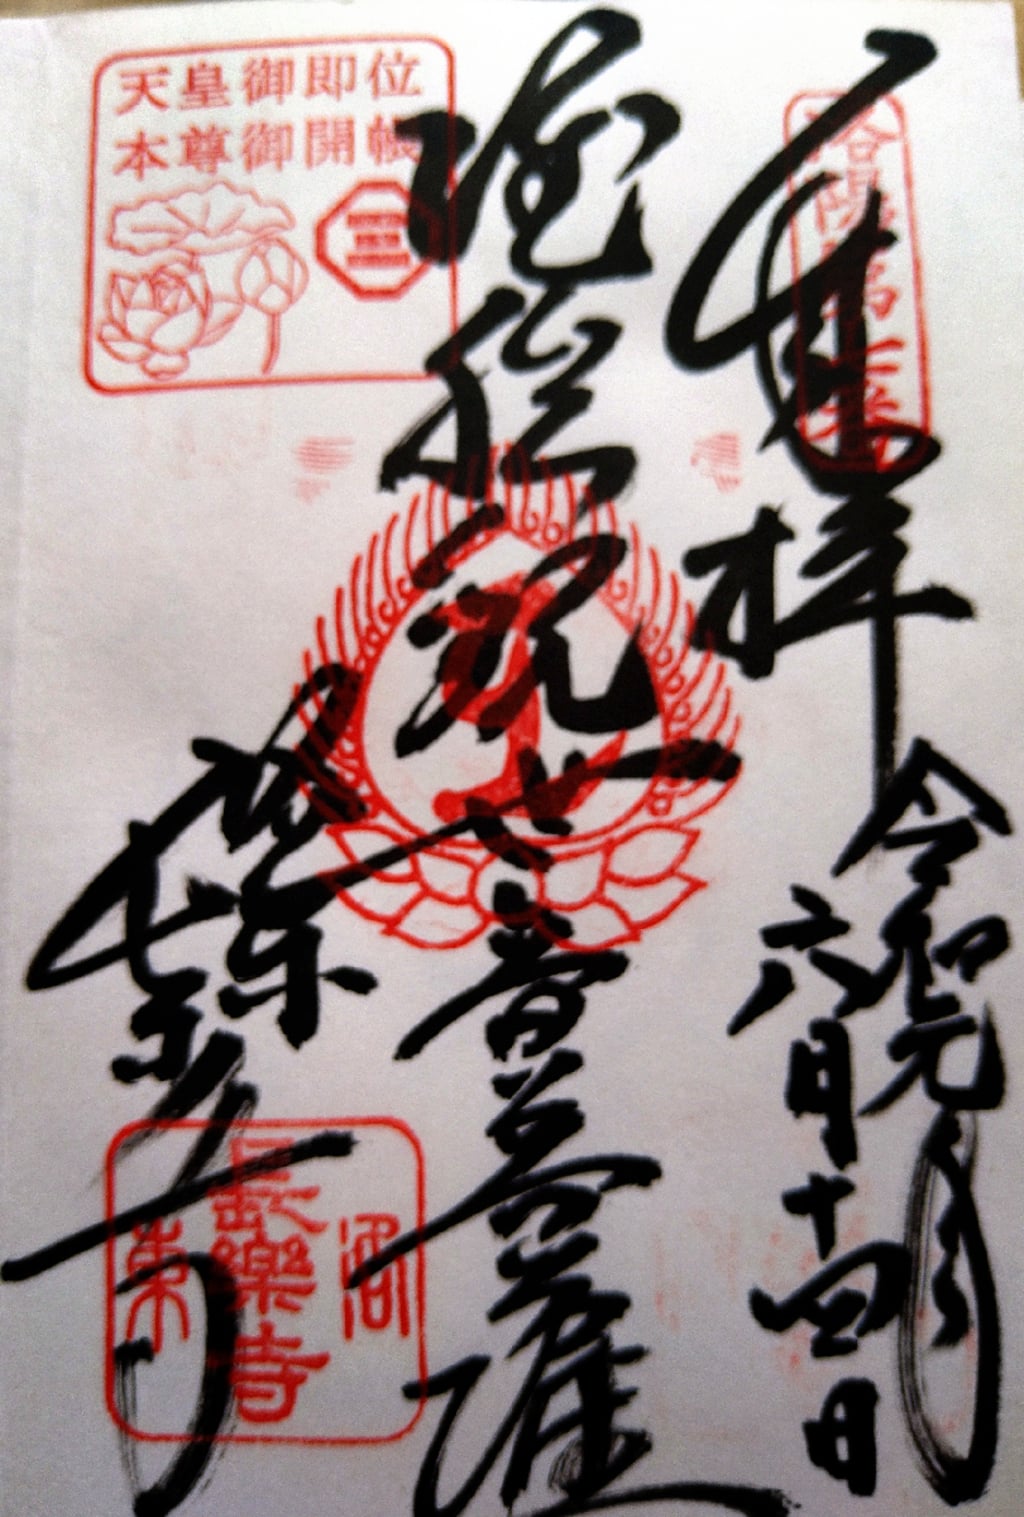 奉拝
令和元年
六月十四日
准胝観世音菩薩
洛東
長楽寺
天皇御即位
本尊御開帳
洛
長楽寺
東